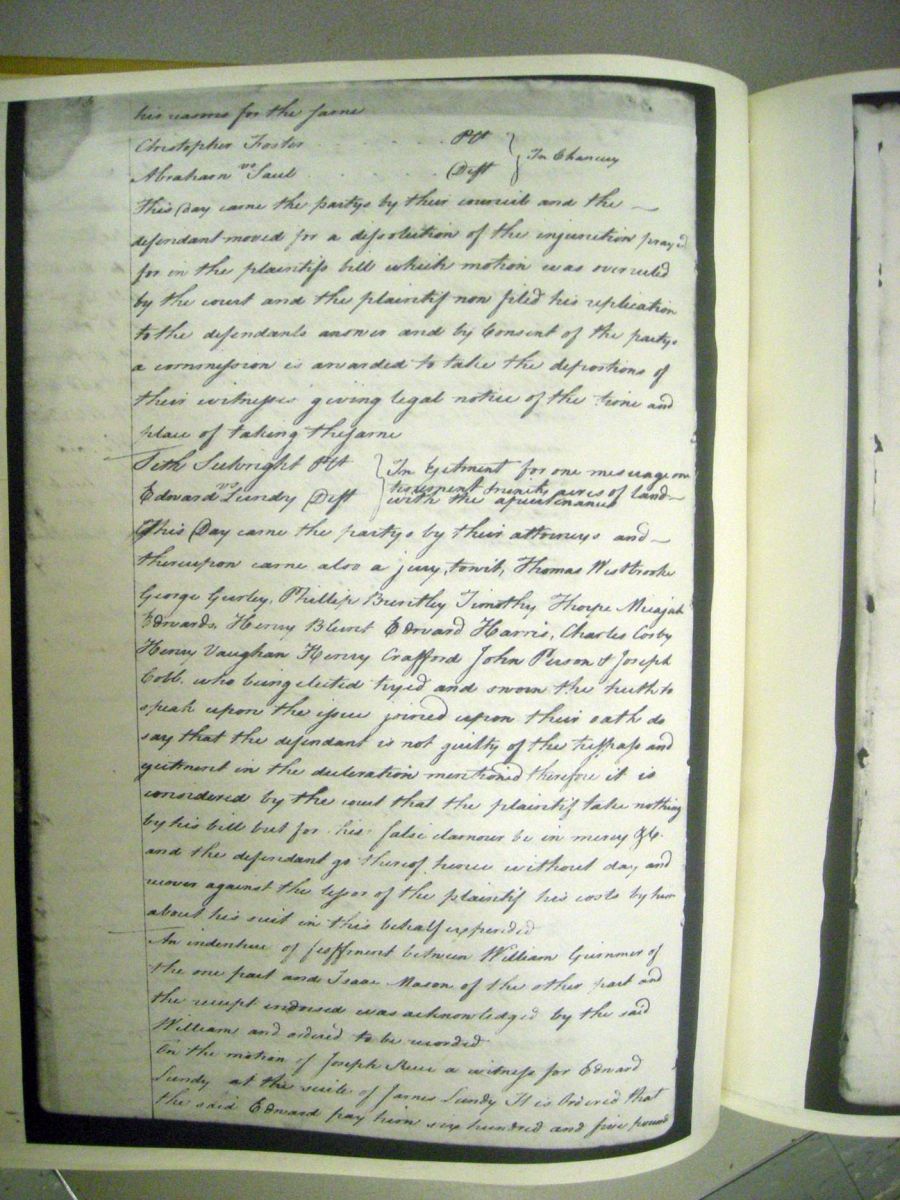 his reasons for the same
Christopher Foster Plt
vs In Chancery
Abraham Saul Deft
This Day came the partys by their council and the
defendant moved for a dissolution of the injunction prayed
for in the plaintifs bill which motion was overruled
by the court and the plaintif now filed his replication
to the defendants answer and by Consent of the partys
a commission is awarded to take the depositions of
their witnesses giving legal notice of the time and
place of taking the same
Seth Plt In Ejectment for one messuage
vs acres of land
Edward Lundy Deft with the
This Day came the partys by their attorneys and
thereupon came also a jury, towit, Thomas Westbrooke
George Gurley, Phillip Timothy Thorpe Micajah
Edwards, Henry Blunt Edward Harris, Charles Cosby
Henry Vaughan Henry Crafford John Person & Joseph
Cobb. who being elected tryed and sworn the truth to
speak upon the issue joined upon their oath do
say that the defendant is not guilty of the tresspass and
ejectment in the decleration mentioned therefore it is
considered by the court that the plaintif take nothing
by his bill but for his false clamour be in mercy &c.
and the defendant go thereof hence without day and
recover against the lessor of the plaintif his costs by him
about his suit in this behalf expended
An indenture of feoffment between William of
the one part and Isaac Mason of the other part and
the receipt endorsed was acknowledged by the said
William and ordered to be recorded
On the motion of Joseph a witness for Edward
Lundy at the suite of James Lundy It is Ordered that
the said Edward pay him six hundred and five pound